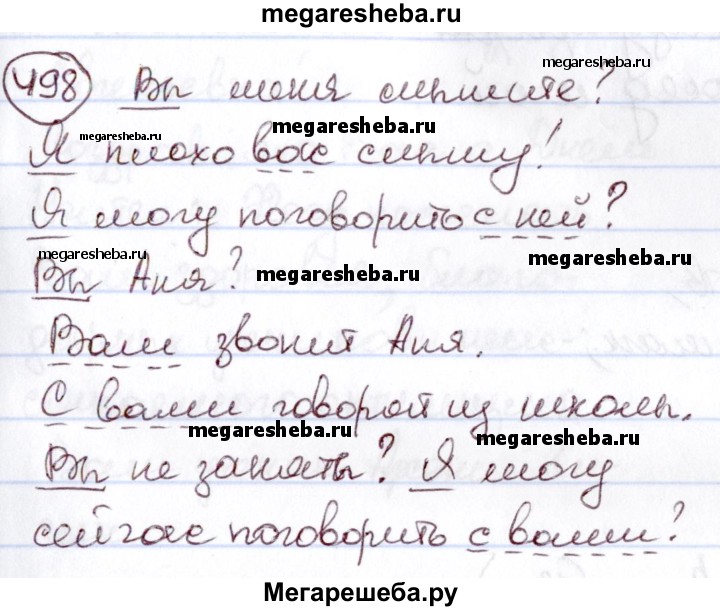 megaresheba.ru
megaresheba.ru
498 Вы меня слышите?
megaresheba.ru
megaresheba.ru
Я плохо вас слышу!
Я могу поговорить с ней?
megaresheba.ru
megaresheba.ru
megaresheba.ru
Вы Аня?
Вам звонит Аня.
С вами говорят из школы.
megaresheba.ru
megaresheba.ru
Вы не заняты? Я могу
сейчас поговорить с вами?
Мегарешеба.ру